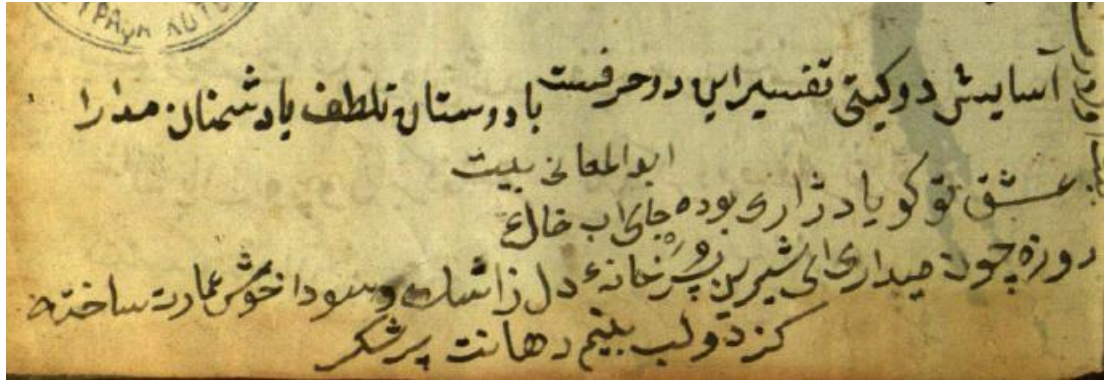 آسایش دو کیتی تفسیر این دو حرفست با دوستان تلطف با دشمنان مدارا
ابوالمعانی بیت
عشق تو کو یاد زاری بوده جای اب خالی
روزه چون میداری ای شیرین پسر خانهٔ دل زاشک و سودا خوش عمارت ساخته
کز دو لب بینم دهانت پر شکر